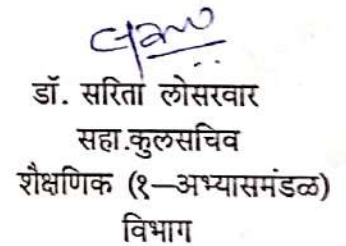 डॉ. सरिता लोसरवार
सहा.कुलसचिव
शैक्षणिक (१–अभ्यासमंडळ)
विभाग